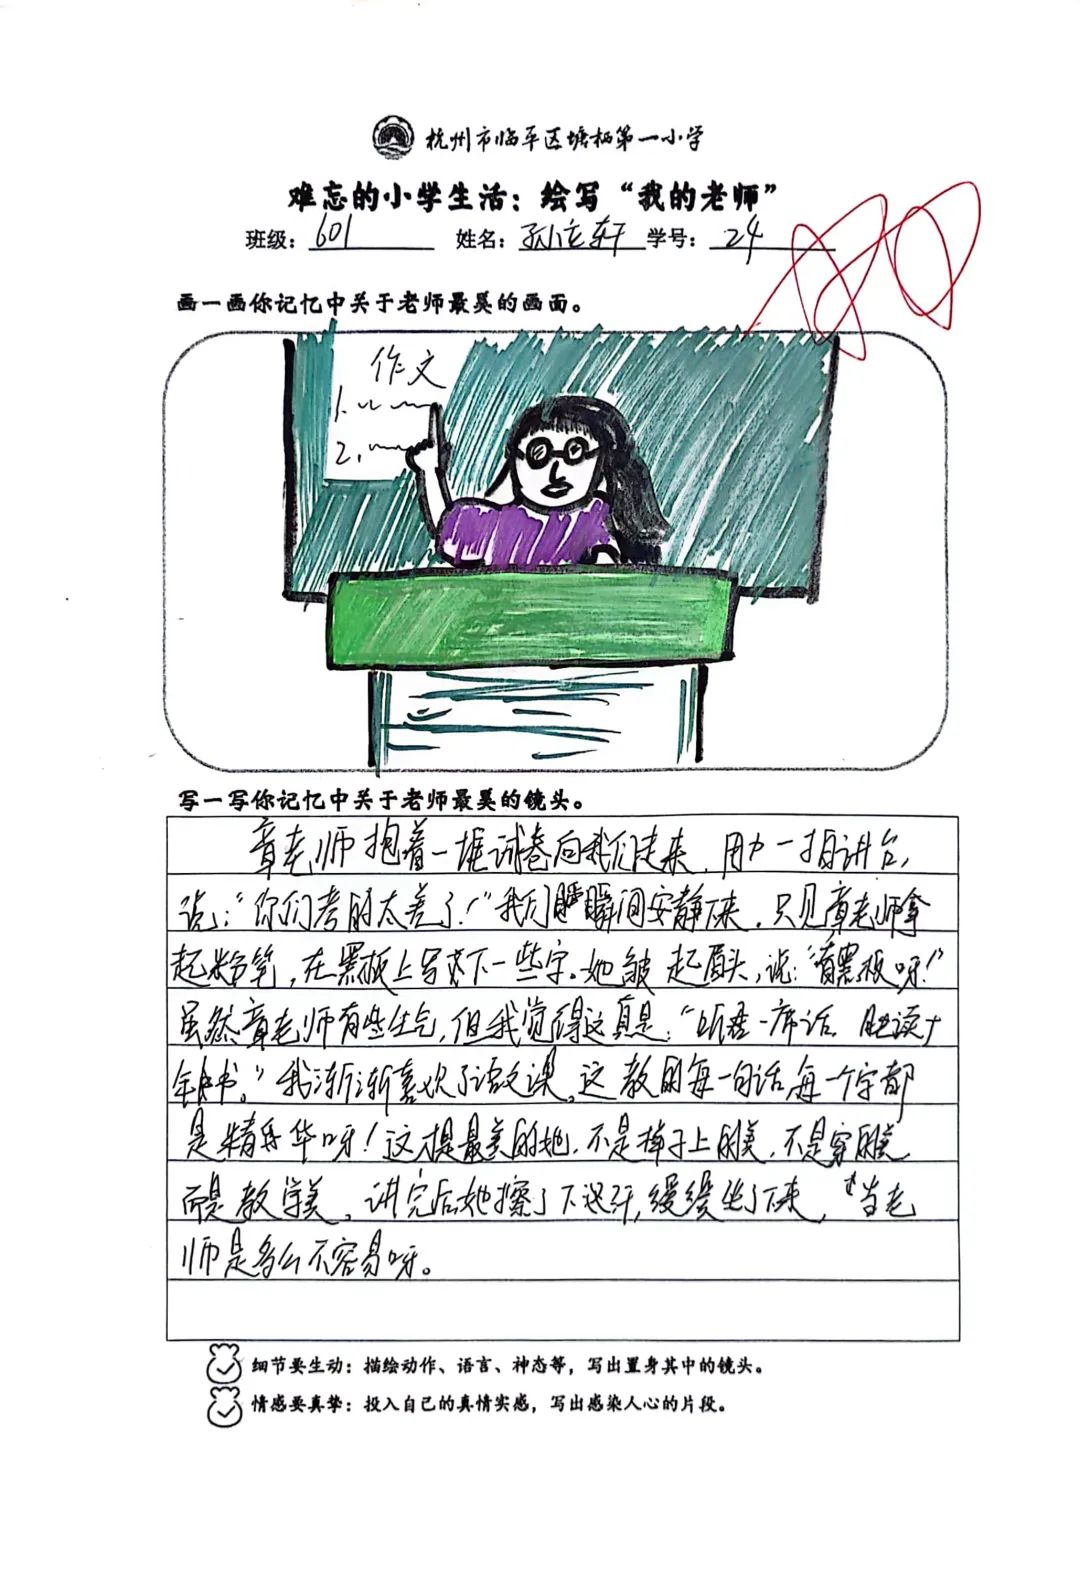 杭州市临平区塘栖第一小学
难忘的小学生活：绘写“我的老师”
班级：601 姓名：孙 轩 学号：24
画一画你记忆中关于老师最美的画面。
作文
1.
2.
写一写你记忆中关于老师最美的镜头。
章老师抱着一堆试卷向我们走来，用力一拍讲台，
说：“你们考的太差了！”我们瞬间安静下来，只见章老师拿
起粉笔，在黑板上写下一些字。她皱起眉头，说：“看黑板呀！”
虽然章老师有些生气，但我觉得这真是：“听君一席话，胜读十
年书。”我渐渐喜欢了语文课，这教的每一句话，每一个字都
是精华呀！这才是最美的她，不是样子上的美，不是穿的美
而是教学美，讲完后她擦了下汗，缓缓坐了下来，当老
师是多么不容易呀。
细节要生动：描绘动作、语言、神态等，写出置身其中的镜头。
情感要真挚：投入自己的真情实感，写出感染人心的片段。